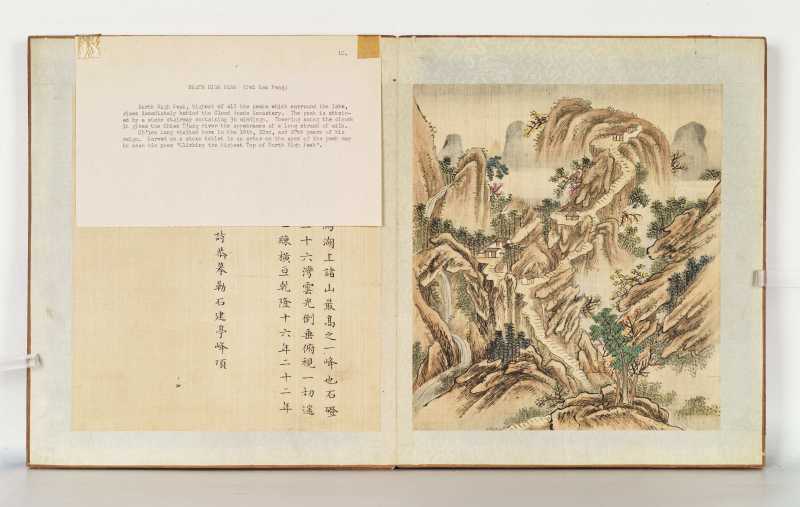 NORTH HIGH PEAK (Pei Kao Feng)
North High Peak, highest of all the peaks which surround the lake,
rises immediately behind the Cloud Monastery. The peak is attain-
ed by a stone stairway containing 36 windings. Towering among the clouds
it gives the Chien T'ang river the appearance of a long strand of silk.
Ch'ien Lung visited here in the 16th, 22nd, and 27th years of his
reign. Carved on a stone tablet in an arbor on the apex of the peak may
be seen his poem "Climbing the highest Top of North High Peak".
湖上諸山最高之一峰也石磴
十六灣雲光倒垂俯視一切遙
練橫亘乾隆十六年二十二年
詩恭摹勒石建亭峰頂